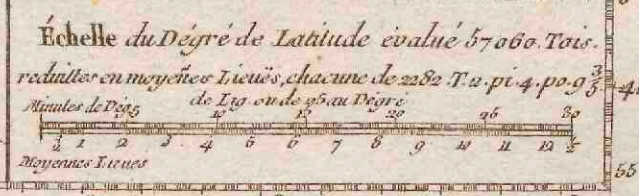 Échelle du Dégré de Latitude évalué 57060. Tois.
réduittes en moyeñes Lieuës, chacune de 2282. T. 2. pi. 4. po. 9 3/5
de Lig. ou de 25 au Dégré
Minutes de Dég. 5 10 15 20 25 30
1/2 1 2 3 4 5 6 7 8 9 10 11 12 1/2
Moyennes Lieues
55